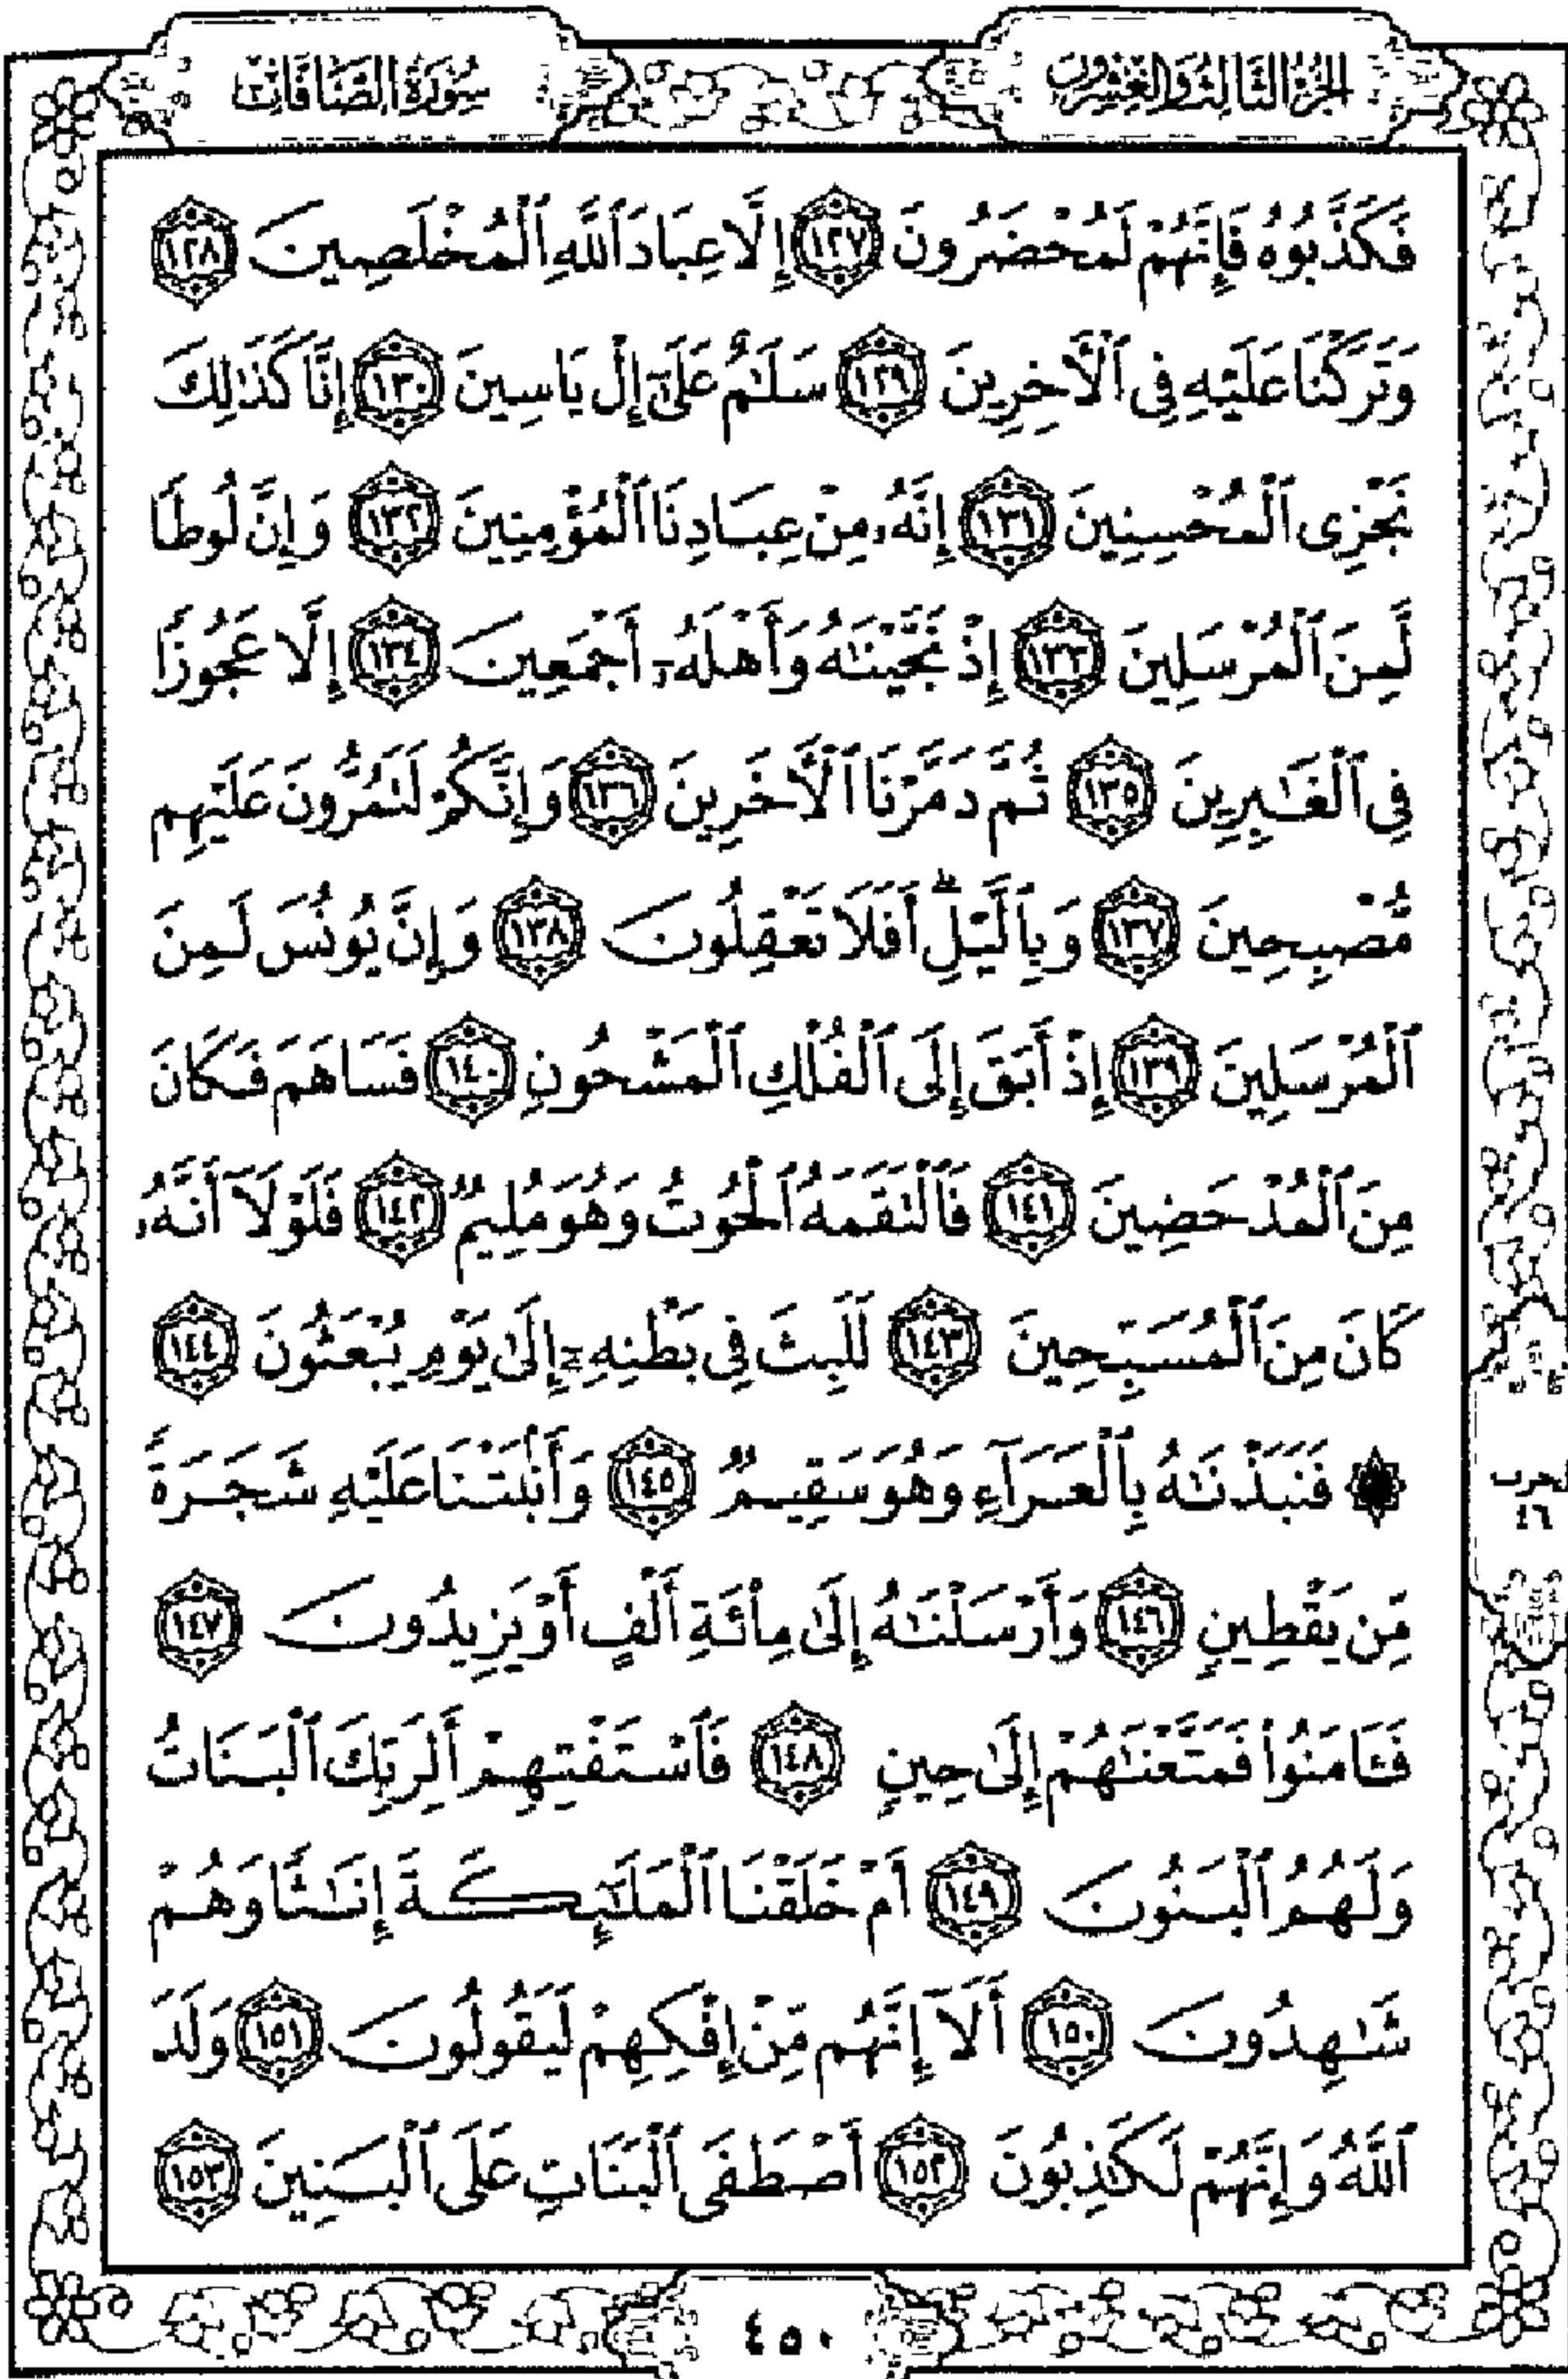 الجزء الثالث والعشرون
سورة الصافات
فَكَذَّبُوهُ فَإِنَّهُمْ لَمُحْضَرُونَ ١٢٧ إِلَّا عِبَادَ ٱللَّهِ ٱلْمُخْلَصِينَ ١٢٨
وَتَرَكْنَا عَلَيْهِ فِي ٱلْأَخِرِينَ ١٢٩ سَلَٰمٌ عَلَىٰٓ إِلْ يَاسِينَ ١٣٠ إِنَّا كَذَٰلِكَ
نَجْزِي ٱلْمُحْسِنِينَ ١٣١ إِنَّهُۥ مِنْ عِبَادِنَا ٱلْمُؤْمِنِينَ ١٣٢ وَإِنَّ لُوطًا
لَّمِنَ ٱلْمُرْسَلِينَ ١٣٣ إِذْ نَجَّيْنَٰهُ وَأَهْلَهُۥٓ أَجْمَعِينَ ١٣٤ إِلَّا عَجُوزًا
فِي ٱلْغَٰبِرِينَ ١٣٥ ثُمَّ دَمَّرْنَا ٱلْأَخَرِينَ ١٣٦ وَإِنَّكُمْ لَتَمُرُّونَ عَلَيْهِم
مُّصْبِحِينَ ١٣٧ وَبِٱلَّيْلِ ۗ أَفَلَا تَعْقِلُونَ ١٣٨ وَإِنَّ يُونُسَ لَمِنَ
ٱلْمُرْسَلِينَ ١٣٩ إِذْ أَبَقَ إِلَى ٱلْفُلْكِ ٱلْمَشْحُونِ ١٤٠ فَسَاهَمَ فَكَانَ
مِنَ ٱلْمُدْحَضِينَ ١٤١ فَٱلْتَقَمَهُ ٱلْحُوتُ وَهُوَ مُلِيمٌ ١٤٢ فَلَوْلَآ أَنَّهُۥ
كَانَ مِنَ ٱلْمُسَبِّحِينَ ١٤٣ لَلَبِثَ فِي بَطْنِهِۦٓ إِلَىٰ يَوْمِ يُبْعَثُونَ ١٤٤
۞ فَنَبَذْنَٰهُ بِٱلْعَرَآءِ وَهُوَ سَقِيمٌ ١٤٥ وَأَنۢبَتْنَا عَلَيْهِ شَجَرَةً
مِّن يَقْطِينٍ ١٤٦ وَأَرْسَلْنَٰهُ إِلَىٰ مِا۟ئَةِ أَلْفٍ أَوْ يَزِيدُونَ ١٤٧
فَـَٔامَنُوا۟ فَمَتَّعْنَٰهُمْ إِلَىٰ حِينٍ ١٤٨ فَٱسْتَفْتِهِمْ أَلِرَبِّكَ ٱلْبَنَاتُ
وَلَهُمُ ٱلْبَنُونَ ١٤٩ أَمْ خَلَقْنَا ٱلْمَلَٰٓئِكَةَ إِنَٰثًا وَهُمْ
شَٰهِدُونَ ١٥٠ أَلَآ إِنَّهُم مِّنْ إِفْكِهِمْ لَيَقُولُونَ ١٥١ وَلَدَ
ٱللَّهُ وَإِنَّهُمْ لَكَٰذِبُونَ ١٥٢ أَصْطَفَى ٱلْبَنَاتِ عَلَى ٱلْبَنِينَ ١٥٣
حزب
٤٦
٤٥٠